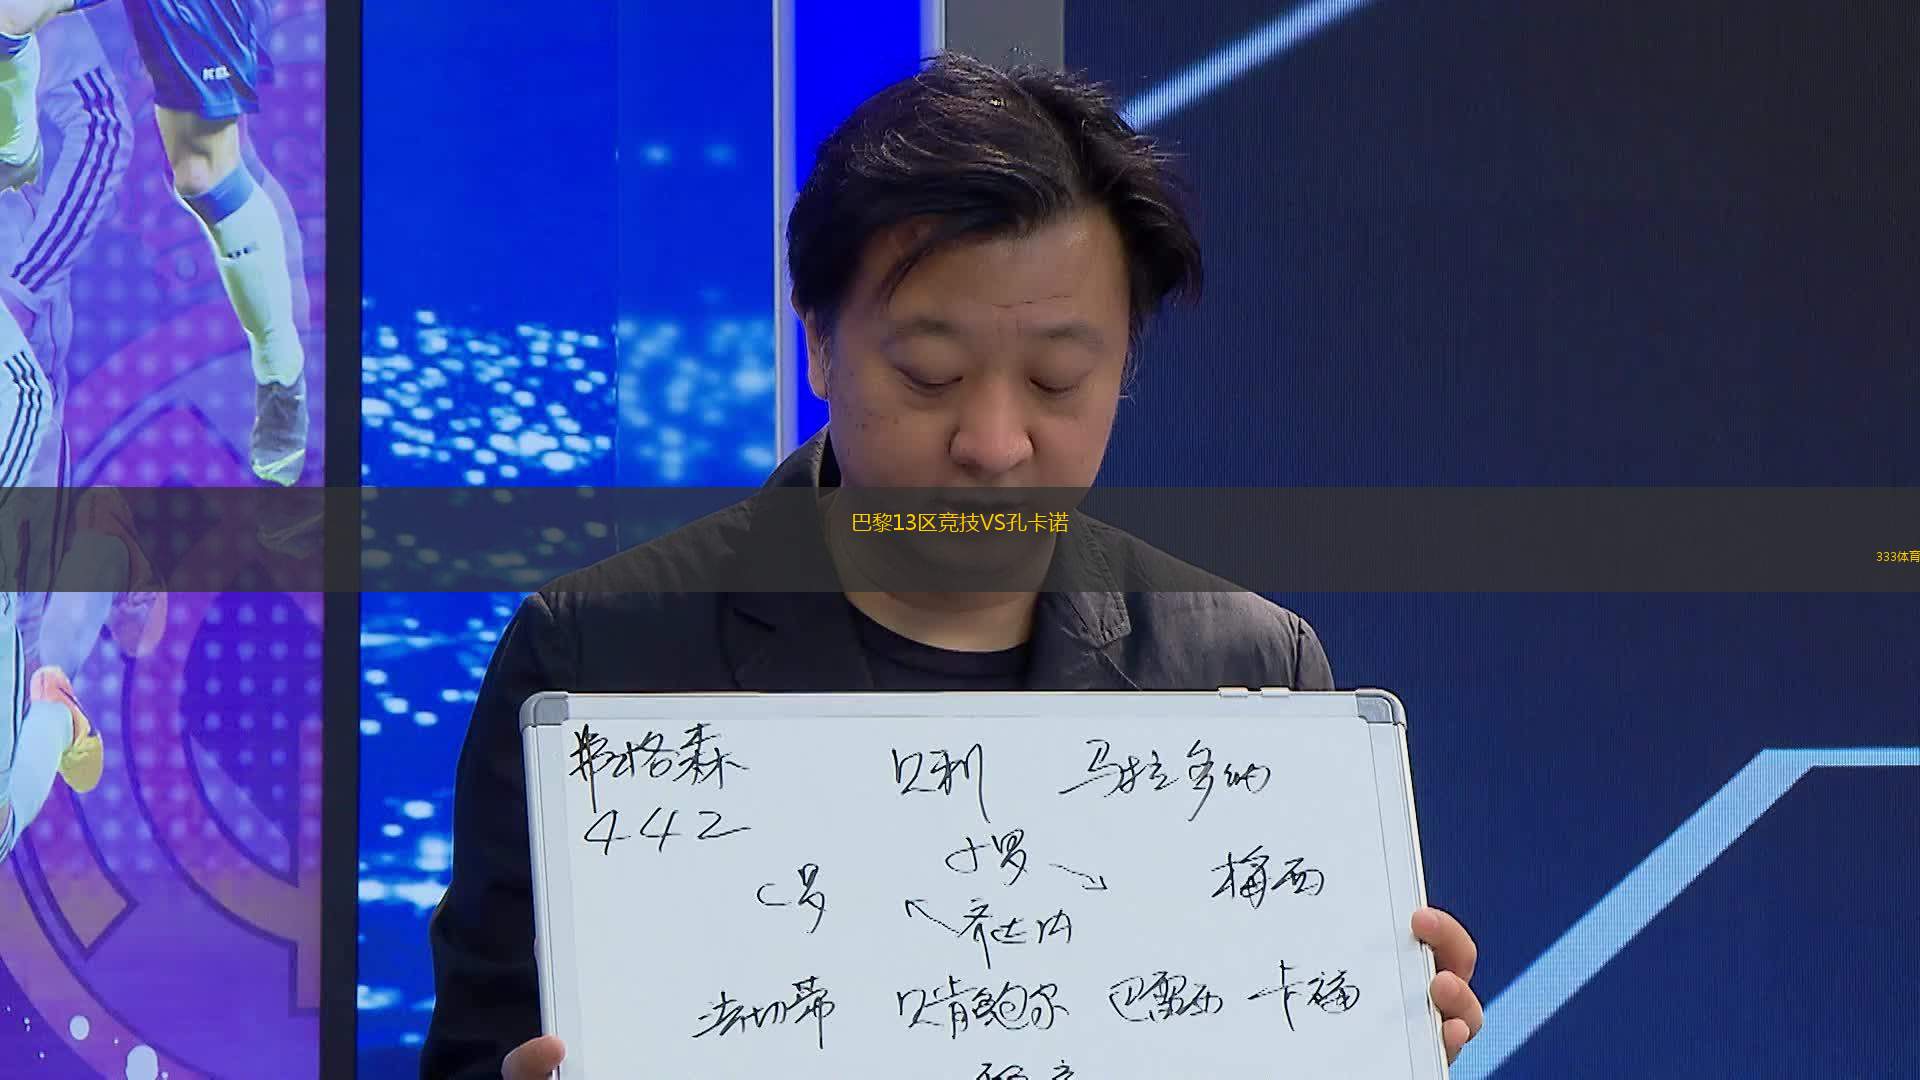 KELME
巴黎13区竞技VS孔卡诺
333体育
弗格森 贝利 马拉多纳
442
小罗
C罗 梅西
齐达内
法切蒂 贝肯鲍尔 巴雷西 卡福